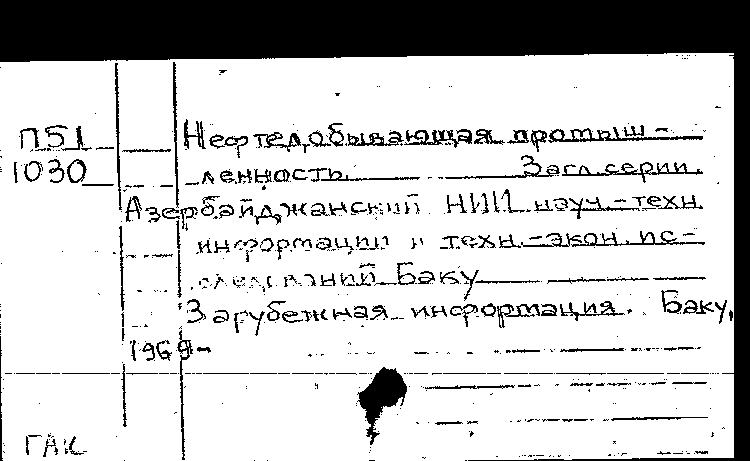 П51
1030
Нефтедобывающая промыш-
ленность. Загл. серии.
Азербайджанский НИИ науч.-техн.
информации и техн.-экон. ис-
следований Баку
Зарубежная информация. Баку,
1969-
ГАК